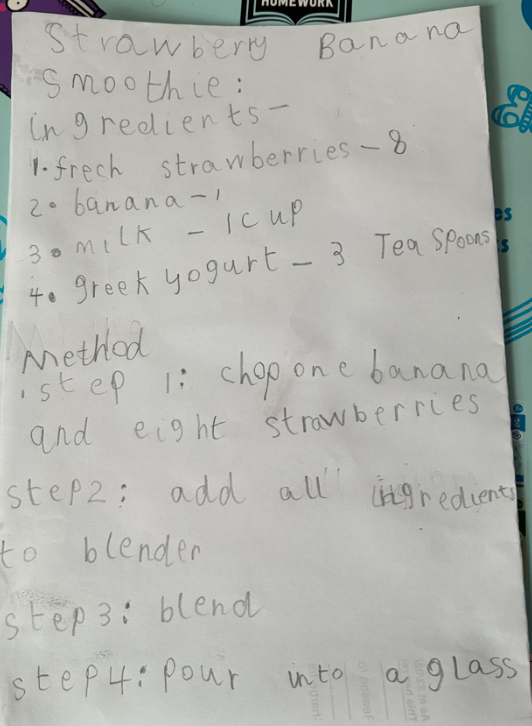 HOMEWORK
Strawberry Banana
Smoothie:
ingredients-
1. frech strawberries - 8
2. banana - 1
3. milk - 1 cup
4. greek yogurt - 3 Tea Spoons
Method
step 1: chop one banana
and eight strawberries
step2: add all ingredients
to blender
step3: blend
step4: pour into a glass